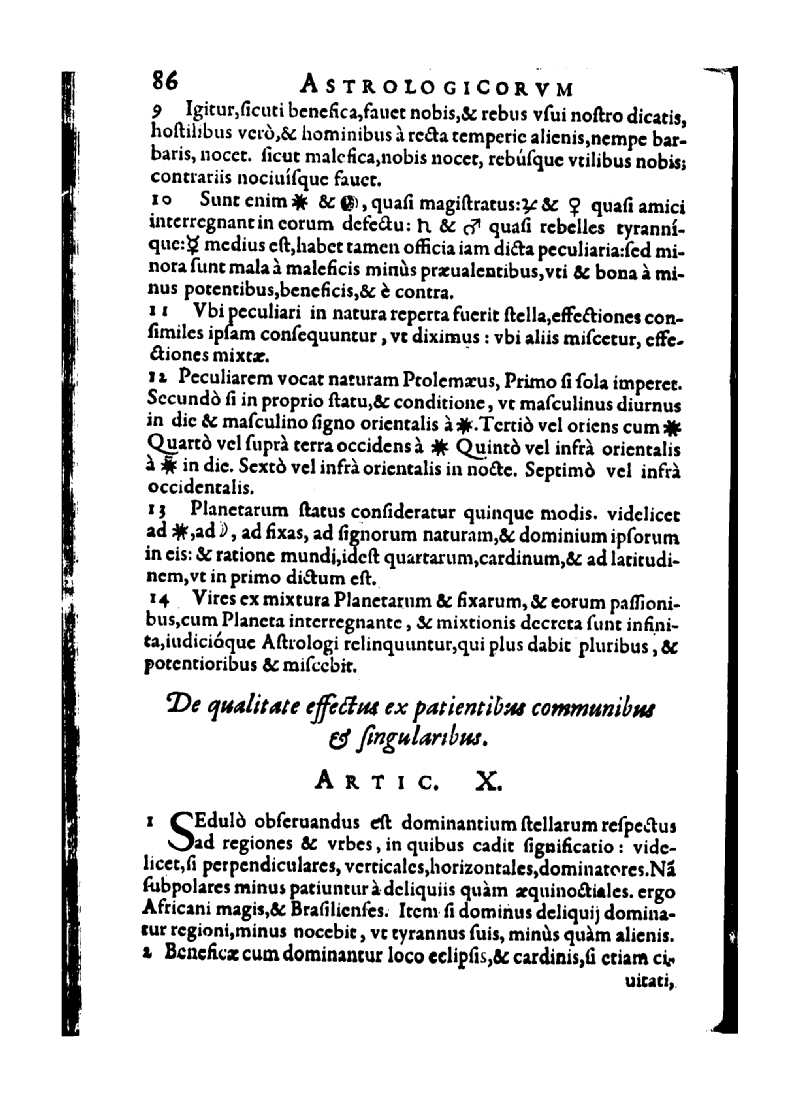 86 ASTROLOGICORVM
9 Igitur,ſicuti benefica,fauet nobis,& rebus vſui noſtro dicatis,
hoſtilibus verò,& hominibus à recta temperie alienis,nempe bar-
baris, nocet. ſicut malefica,nobis nocet, rebúſque vtilibus nobis;
contrariis nociuíſque fauet.
10 Sunt enim ☀ & ☽, quaſi magiſtratus:♃ & ♀ quaſi amici
interregnant in eorum defectu: ♄ & ♂ quaſi rebelles tyranní-
que:☿ medius eſt,habet tamen officia iam dicta peculiaria:ſed mi-
nora ſunt mala à maleficis minùs præualentibus,vti & bona à mi-
nus potentibus,beneficis,& è contra.
11 Vbi peculiari in natura reperta fuerit ſtella,effectiones con-
ſimiles ipſam conſequuntur , vt diximus : vbi aliis miſcetur, effe-
ctiones mixtæ.
12 Peculiarem vocat naturam Ptolemæus, Primo ſi ſola imperet.
Secundò ſi in proprio ſtatu,& conditione, vt maſculinus diurnus
in die & maſculino ſigno orientalis à ☀.Tertiò vel oriens cum ☀
Quartò vel ſuprà terra occidens à ☀ Quintò vel infrà orientalis
à ☀ in die. Sextò vel infrà orientalis in nocte. Septimò vel infrà
occidentalis.
13 Planetarum ſtatus conſideratur quinque modis. videlicet
ad ☀,ad ☽, ad fixas, ad ſignorum naturam,& dominium ipſorum
in eis: & ratione mundi,ideſt quartarum,cardinum,& ad latitudi-
nem,vt in primo dictum eſt.
14 Vires ex mixtura Planetarum & fixarum, & eorum paſſioni-
bus,cum Planeta interregnante , & mixtionis decreta ſunt infini-
ta,iudicióque Aſtrologi relinquuntur,qui plus dabit pluribus , &
potentioribus & miſcebit.
De qualitate effectus ex patientibus communibus
& ſingularibus.
ARTIC. X.
1 SEdulò obſeruandus eſt dominantium ſtellarum reſpectus
ad regiones & vrbes, in quibus cadit ſignificatio : vide-
licet,ſi perpendiculares, verticales,horizontales,dominatores.Nã
ſubpolares minus patiuntur à deliquiis quàm æquinoctiales. ergo
Africani magis,& Braſilienſes. Item ſi dominus deliquij domina-
tur regioni,minus nocebit, vt tyrannus ſuis, minùs quàm alienis.
2 Beneficæ cum dominantur loco eclipſis,& cardinis,ſi etiam ci-
uitati,